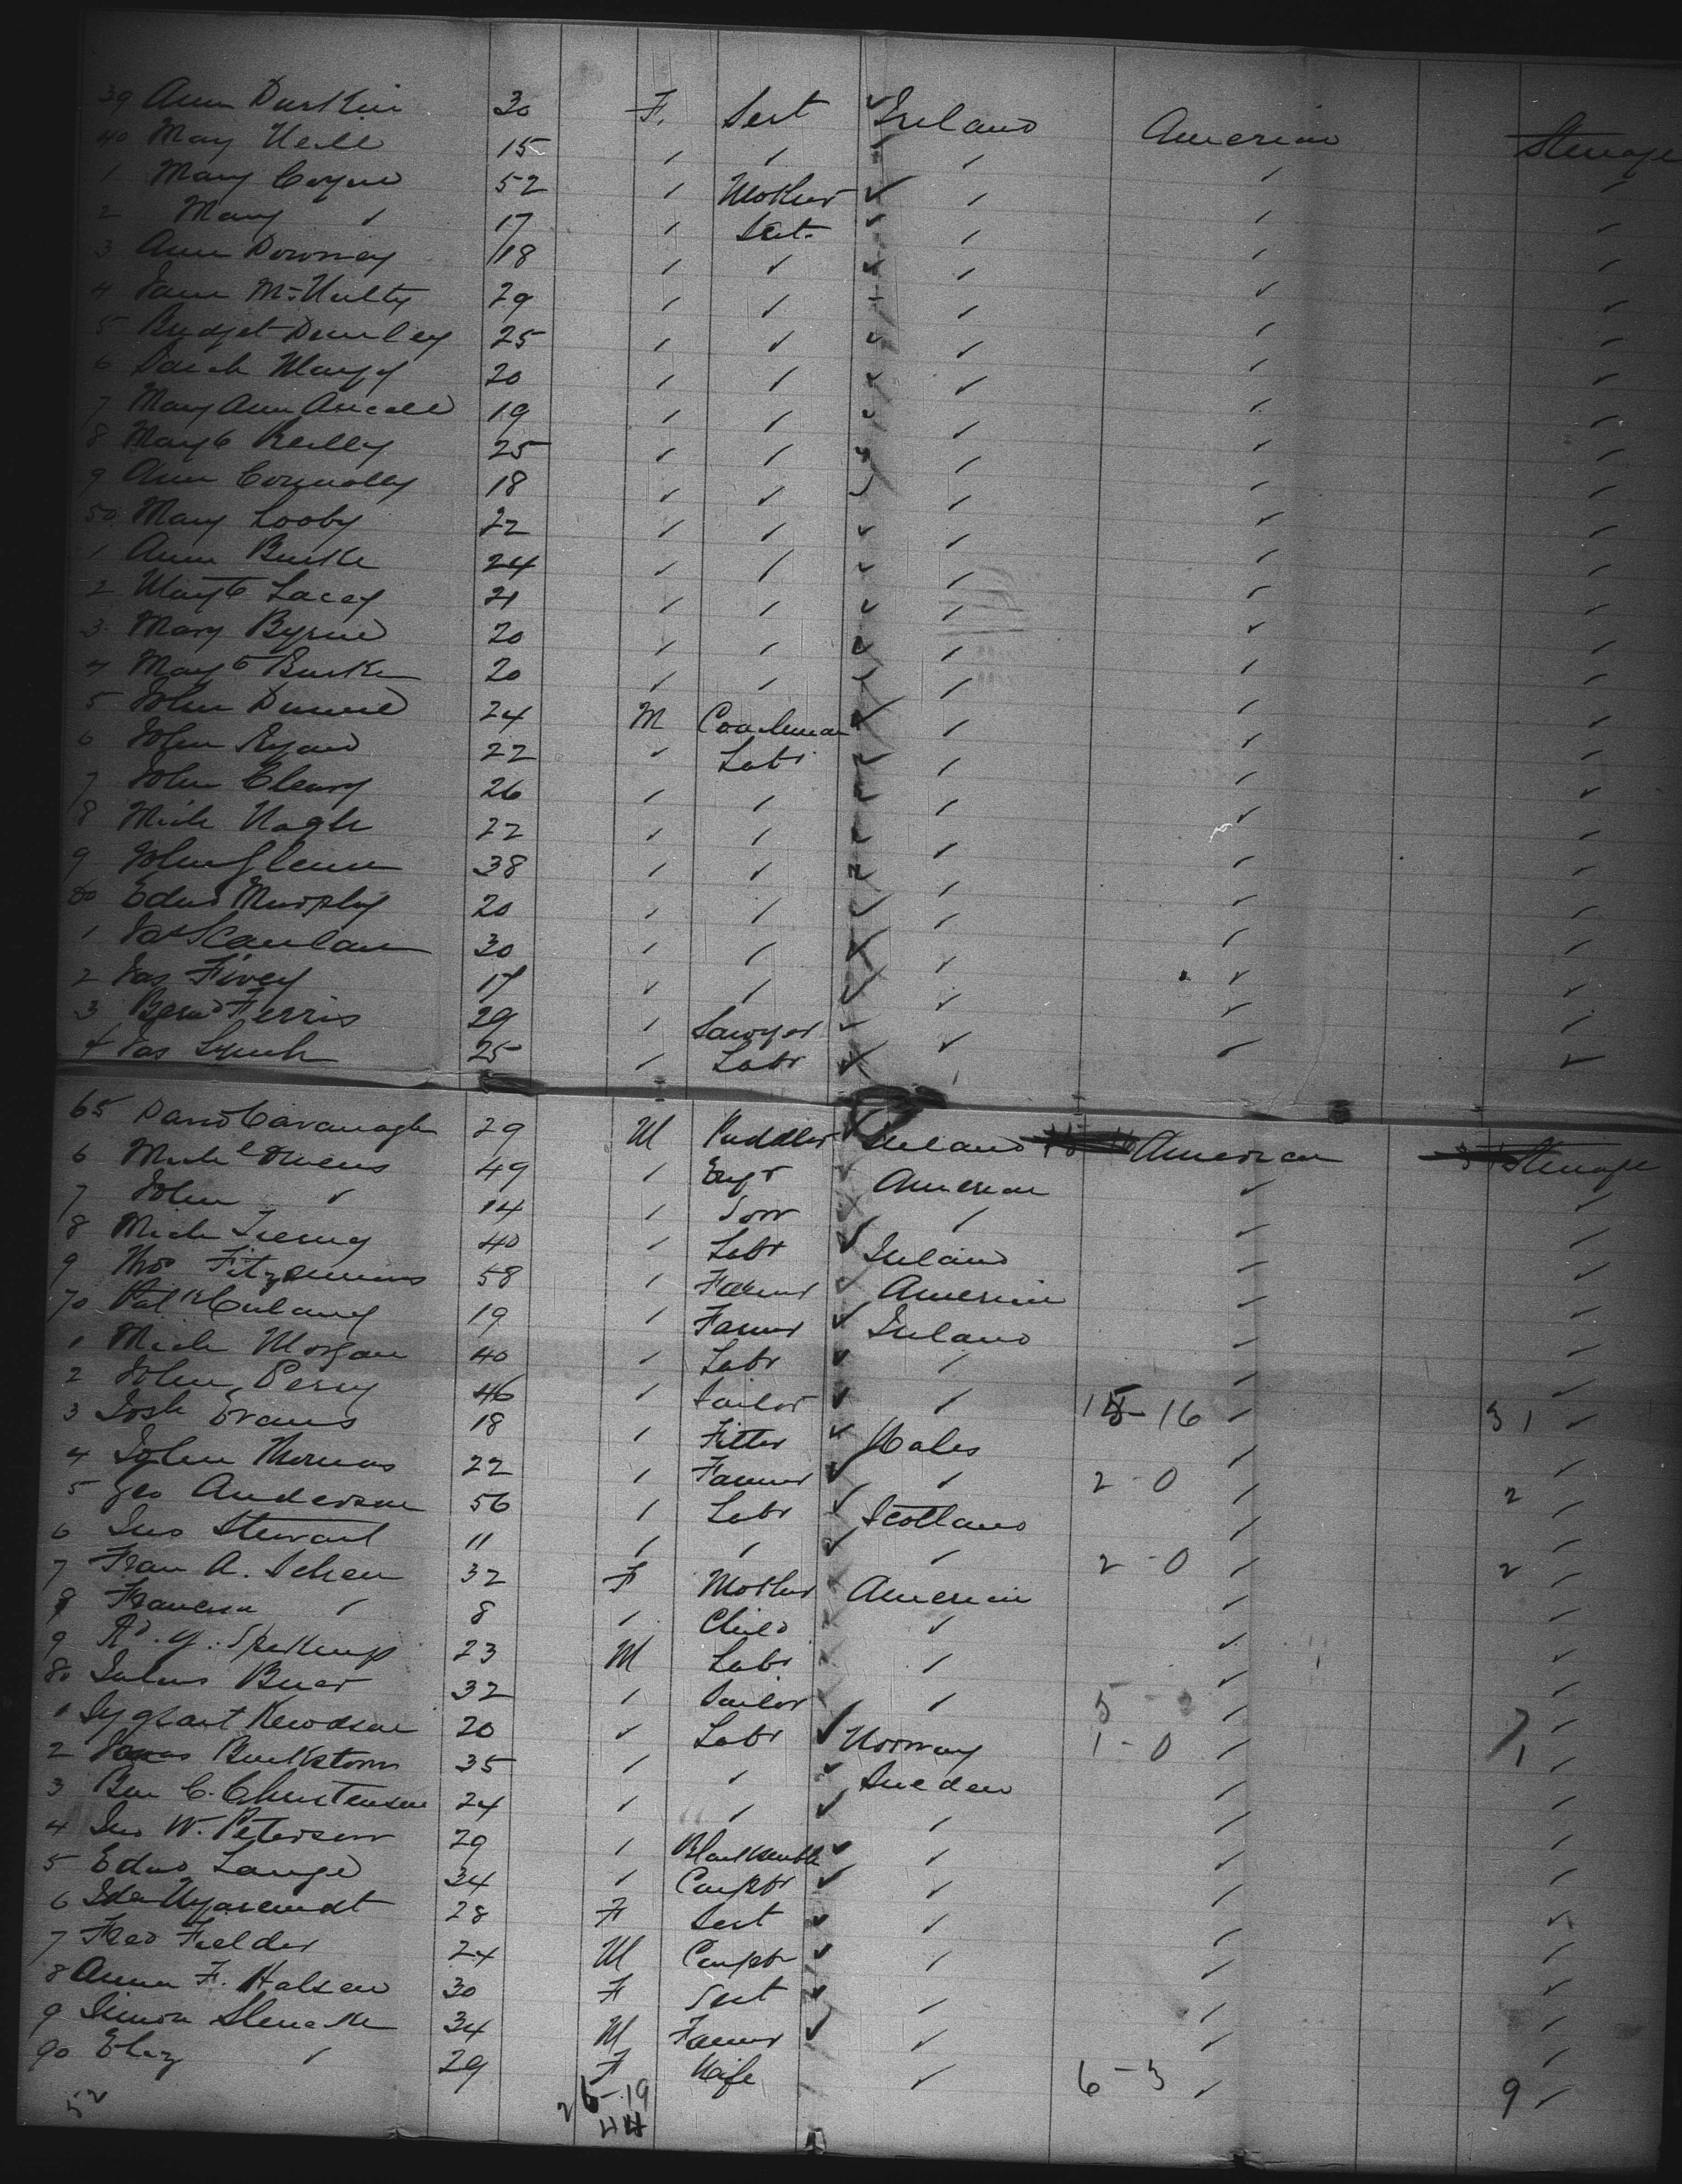 39 Ann Durkin 30 F. Sert ✓ Ireland American Steerage
40 May Neill 15 ✓ ✓ ✓ ✓ ✓ ✓
1 Mary Coyne 52 ✓ Mother ✓ ✓ ✓ ✓
2 Mary ✓ 17 ✓ Sert ✓ ✓ ✓ ✓
3 Ann Downey 18 ✓ ✓ ✓ ✓ ✓ ✓
4 Jane McNulty 29 ✓ ✓ ✓ ✓ ✓ ✓
5 Bridget 25 ✓ ✓ ✓ ✓ ✓ ✓
6 Sarah 20 ✓ ✓ ✓ ✓ ✓ ✓
7 Mary Ann 19 ✓ ✓ ✓ ✓ ✓ ✓
8 Margt Reilly 25 ✓ ✓ ✓ ✓ ✓ ✓
9 Ann Connolly 18 ✓ ✓ ✓ ✓ ✓ ✓
50 Mary Looby 22 ✓ ✓ ✓ ✓ ✓ ✓
1 Ann Burke 24 ✓ ✓ ✓ ✓ ✓ ✓
2 Margt Lacey 21 ✓ ✓ ✓ ✓ ✓ ✓
3 Mary Byrne 20 ✓ ✓ ✓ ✓ ✓ ✓
4 Margt Burke 20 ✓ ✓ ✓ ✓ ✓ ✓
5 John Dunne 24 M Coachman ✓ ✓ ✓ ✓
6 John Ryan 22 ✓ Labr ✓ ✓ ✓ ✓
7 John Cleary 26 ✓ ✓ ✓ ✓ ✓ ✓
8 Mich Nagle 22 ✓ ✓ ✓ ✓ ✓ ✓
9 John Glenn 38 ✓ ✓ ✓ ✓ ✓ ✓
60 Edwd Murphy 20 ✓ ✓ ✓ ✓ ✓ ✓
1 Jas Scanlan 30 ✓ ✓ ✓ ✓ ✓ ✓
2 Jas Fivey 17 ✓ ✓ ✓ ✓ ✓ ✓
3 Bernd Ferris 29 ✓ Sawyer ✓ ✓ ✓ ✓
4 Jas Lynch 25 ✓ Labr ✓ ✓ ✓ ✓
65 David Cavanagh 29 M Puddler ✓ Ireland American Steerage
6 Michl Owens 49 ✓ Engr ✓ American ✓ ✓
7 John ✓ 14 ✓ Son ✓ ✓ ✓ ✓
8 Mich Tierney 40 ✓ Labr ✓ Ireland ✓ ✓
9 Thos Fitzsimmons 58 ✓ Farmer ✓ American ✓ ✓
70 Patk 19 ✓ Farmer ✓ Ireland ✓ ✓
1 Mich Morgan 40 ✓ Labr ✓ ✓ ✓ ✓
2 John Perry 46 ✓ Sailor ✓ ✓ 15-16 ✓ 31 ✓
3 Josh Evans 18 ✓ Fitter ✓ Wales ✓ ✓
4 John Thomas 22 ✓ Farmer ✓ ✓ 2-0 ✓ 2 ✓
5 Geo Anderson 56 ✓ Labr ✓ Scotland ✓ ✓
6 Jno Stewart 11 ✓ ✓ ✓ ✓ 2-0 ✓ 2 ✓
7 Fran A. 32 F Mother American ✓ ✓
8 Francisca ✓ 8 ✓ Child ✓ ✓ ✓
9 23 M Labr ✓ ✓ ✓
80 Julius 32 ✓ Sailor ✓ 5 ✓ 7 ✓
1 20 ✓ Labr ✓ Norway 1-0 ✓ 1 ✓
2 35 ✓ ✓ ✓ Sweden ✓ ✓
3 Ben C. Christensen 24 ✓ ✓ ✓ ✓ ✓ ✓
4 Jno W. Peterson 29 ✓ Blacksmith ✓ ✓ ✓ ✓
5 Edwd Lange 34 ✓ Carptr ✓ ✓ ✓ ✓
6 Ida 28 F Sert ✓ ✓ ✓ ✓
7 Fred Fielder 24 M Carptr ✓ ✓ ✓ ✓
8 Anna F. Halsen 30 F Sert ✓ ✓ ✓ ✓
9 Simon 34 M Farmer ✓ ✓ ✓ ✓
90 Eliz ✓ 29 F Wife ✓ 6-3 ✓ 9 ✓
52 26-19
44